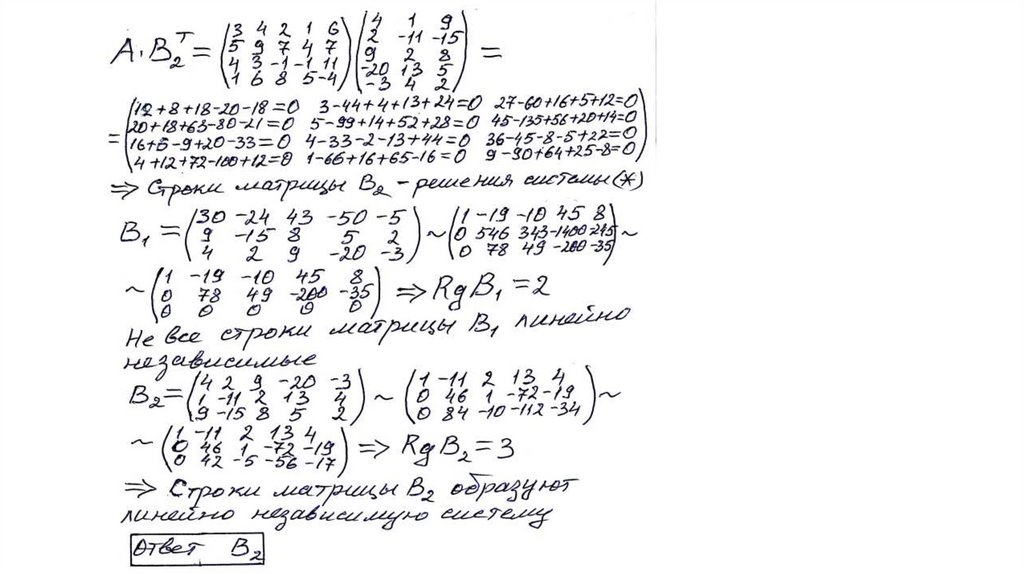 A·B₂ᵀ = (3 4 2 1 6; 5 9 7 4 7; 4 3 -1 -1 11; 1 6 8 5 -4) (4 1 9; 2 -11 -15; 9 2 8; -20 13 5; -3 4 2) =
= (12+8+18-20-18=0 3-44+4+13+24=0 27-60+16+5+12=0
20+18+63-80-21=0 5-99+14+52+28=0 45-135+56+20+14=0
16+6-9+20-33=0 4-33-2-13+44=0 36-45-8-5+22=0
4+12+72-100+12=0 1-66+16+65-16=0 9-90+64+25-8=0)
⇒ Строки матрицы B₂ - решения системы (*)
B₁ = (30 -24 43 -50 -5; 9 -15 8 5 2; 4 2 9 -20 -3) ~ (1 -19 -10 45 8; 0 546 343 -1400 -245; 0 78 49 -200 -35) ~
~ (1 -19 -10 45 8; 0 78 49 -200 -35; 0 0 0 0 0) ⇒ Rg B₁ = 2
Не все строки матрицы B₁ линейно
независимые
B₂ = (4 2 9 -20 -3; 1 -11 2 13 4; 9 -15 8 5 2) ~ (1 -11 2 13 4; 0 46 1 -72 -19; 0 84 -10 -112 -34) ~
~ (1 -11 2 13 4; 0 46 1 -72 -19; 0 42 -5 -56 -17) ⇒ Rg B₂ = 3
⇒ Строки матрицы B₂ образуют
линейно независимую систему
Ответ B₂